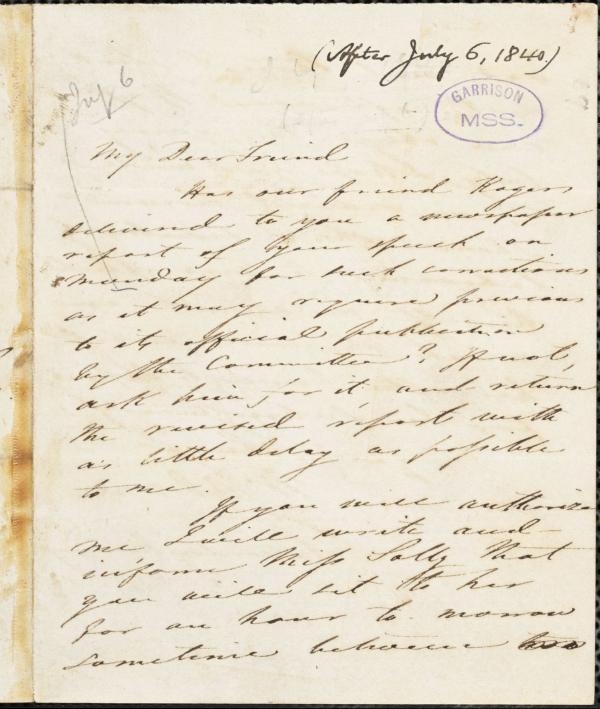 (After July 6, 1840.)
July 6
GARRISON
MSS.
My Dear Friend
Has our friend Rogers
delivered to you a newspaper
report of your speech on
Monday for such corrections
as it may require previous
to its official publication
by the Committee? If not,
ask him for it, and return
the revised report with
as little delay as possible
to me.
If you will authorize
me I will write and
inform Miss Solly that
you will sit to her
for an hour to-morrow
sometime between